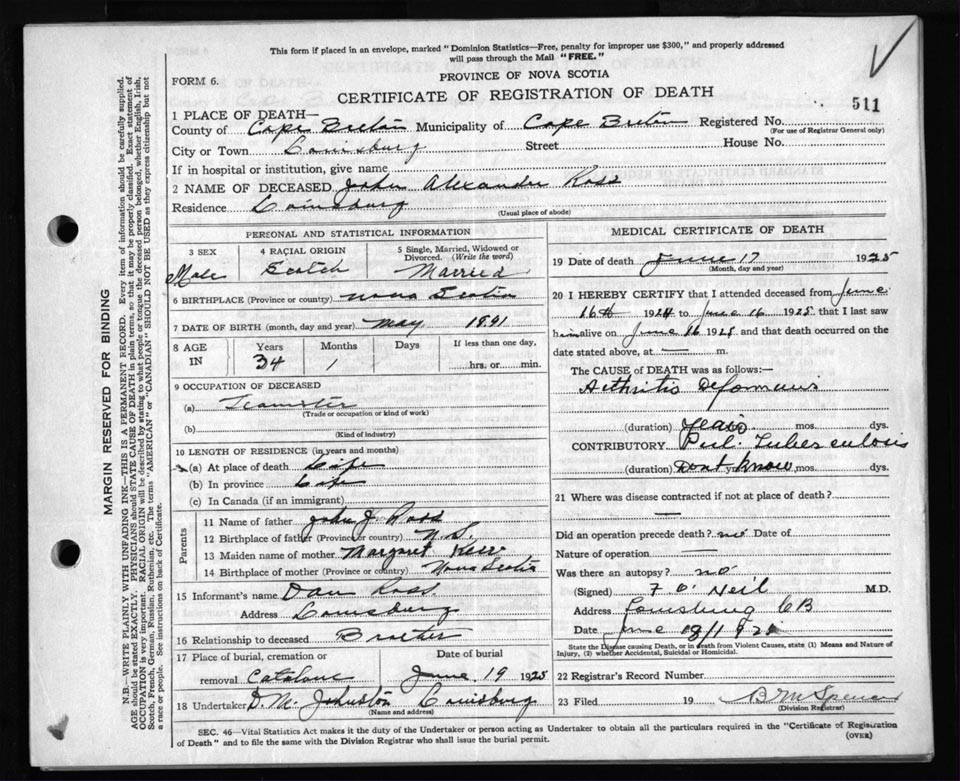 This form if placed in an envelope, marked "Dominion Statistics—Free, penalty for improper use $300," and properly addressed
will pass through the Mail "FREE."
FORM 6.
PROVINCE OF NOVA SCOTIA
CERTIFICATE OF REGISTRATION OF DEATH
511
1 PLACE OF DEATH—
County of Cape Breton Municipality of Cape Breton Registered No.
(For use of Registrar General only)
City or Town Louisburg Street House No.
If in hospital or institution, give name
2 NAME OF DECEASED John Alexander Ross
Residence Louisburg
(Usual place of abode)
PERSONAL AND STATISTICAL INFORMATION
3 SEX Male
4 RACIAL ORIGIN Scotch
5 Single, Married, Widowed or Divorced. (Write the word) Married
6 BIRTHPLACE (Province or country) Nova Scotia
7 DATE OF BIRTH (month, day and year) May 1891
8 AGE IN Years 34 Months 1 Days If less than one day, hrs. or min.
9 OCCUPATION OF DECEASED
(a) Teamster
(Trade or occupation or kind of work)
(b)
(Kind of industry)
10 LENGTH OF RESIDENCE (in years and months)
(a) At place of death Life
(b) In province Life
(c) In Canada (if an immigrant)
Parents
11 Name of father John J Ross
12 Birthplace of father (Province or country) N.S.
13 Maiden name of mother Margaret
14 Birthplace of mother (Province or country) Nova Scotia
15 Informant's name Dan Ross
Address Louisburg
16 Relationship to deceased Brother
17 Place of burial, cremation or removal Catalone
Date of burial June 19 1925
18 Undertaker D. M. Johnston Louisburg
(Name and address)
MEDICAL CERTIFICATE OF DEATH
19 Date of death June 17 1925
(Month, day and year)
20 I HEREBY CERTIFY that I attended deceased from June
16th 1924 to June 16 1925, that I last saw
him alive on June 16 1925 and that death occurred on the
date stated above, at — m.
The CAUSE of DEATH was as follows:—
Arthritis Deformans
(duration) years mos. dys.
CONTRIBUTORY Pul. Tuberculosis
(duration) Dont know yrs. mos. dys.
21 Where was disease contracted if not at place of death?
—
Did an operation precede death? no Date of
Nature of operation —
Was there an autopsy? no
(Signed) F O'Neil M.D.
Address Louisburg CB
Date June
State the Disease causing Death, or in death from Violent Causes, state (1) Means and Nature of
Injury, (2) whether Accidental, Suicidal or Homicidal.
22 Registrar's Record Number
23 Filed 19 Spencer
(Division Registrar)
SEC. 46—Vital Statistics Act makes it the duty of the Undertaker or person acting as Undertaker to obtain all the particulars required in the "Certificate of Registration
of Death" and to file the same with the Division Registrar who shall issue the burial permit.
(OVER)
MARGIN RESERVED FOR BINDING
N.B.—WRITE PLAINLY WITH UNFADING INK—THIS IS A PERMANENT RECORD. Every item of information should be carefully supplied.
AGE should be stated EXACTLY. PHYSICIANS should STATE CAUSE OF DEATH in plain terms, so that it may be properly classified. Exact statement of
OCCUPATION is very important. RACIAL ORIGIN will be described by stating to what people or tongue the deceased person belonged, whether English, Irish,
Scotch, French, German, Russian, Ruthenian, etc. The terms "AMERICAN" or "CANADIAN" SHOULD NOT BE USED as they express citizenship but not
a race or people. See instructions on back of Certificate.